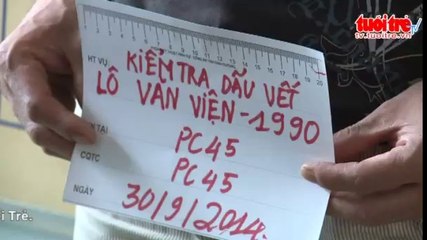 tuổi trẻ
tv.tuoitre.vn
HT VỤ
KIỂM TRA DẤU VẾT
LÔ VĂN VIỆN - 1990
TẠI PC45
CQTC PC45
NGÀY 30/9/2014.
i Trẻ.